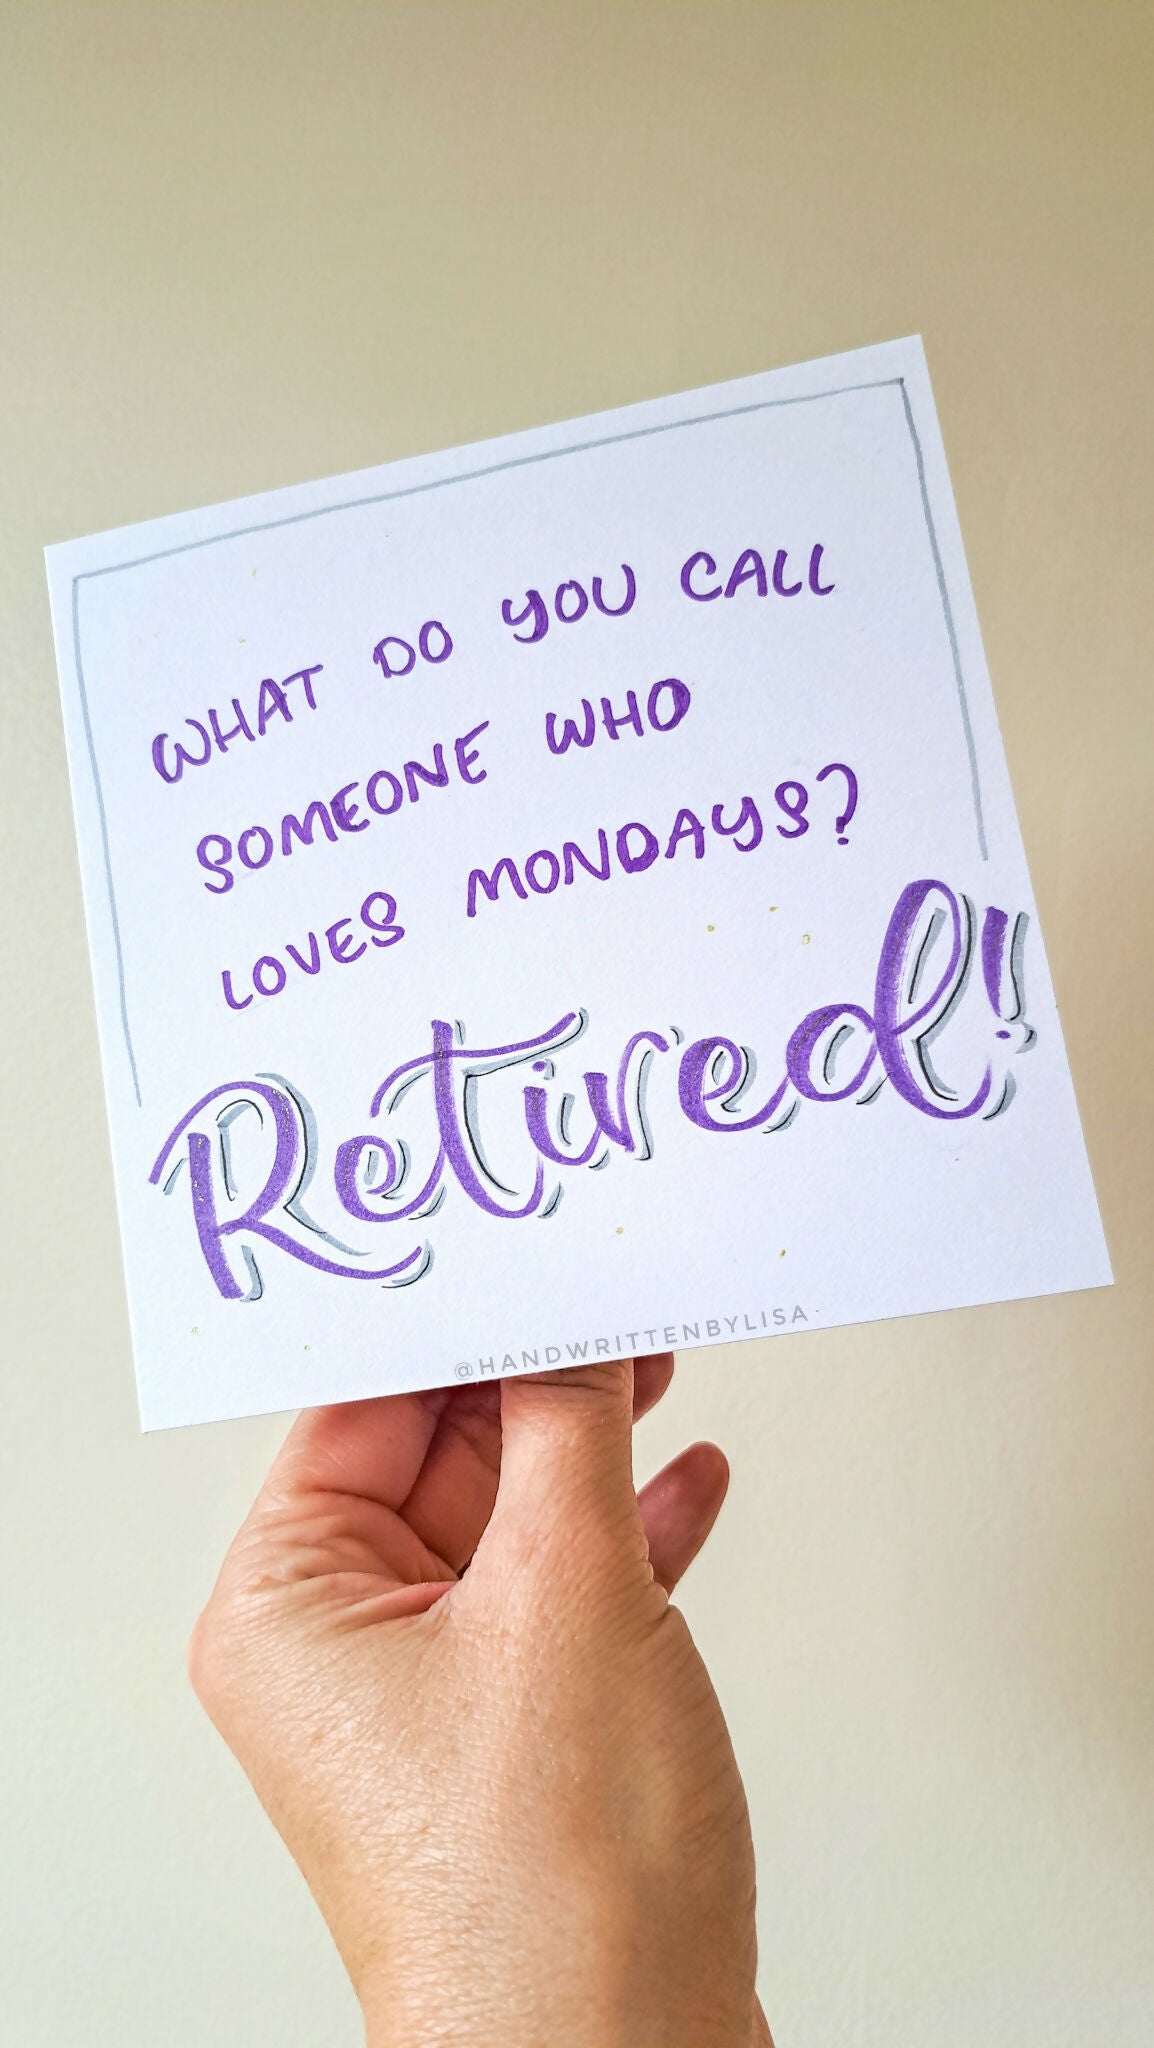 WHAT DO YOU CALL
SOMEONE WHO
LOVES MONDAYS?
Retired!
@HANDWRITTENBYLISA